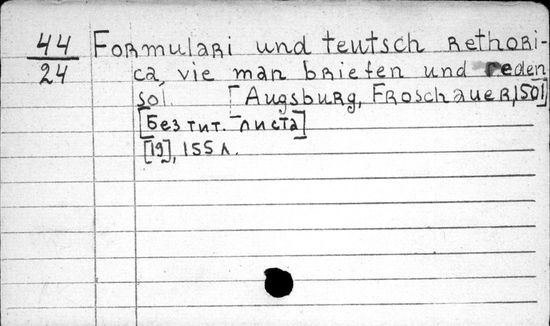 44 Formulari und teutsch Rethori-
24 ca, vie man briefen und reden
sol. [Augsburg, Froschauer, 1501]
[Без тит. листа]
[19], 155 л.